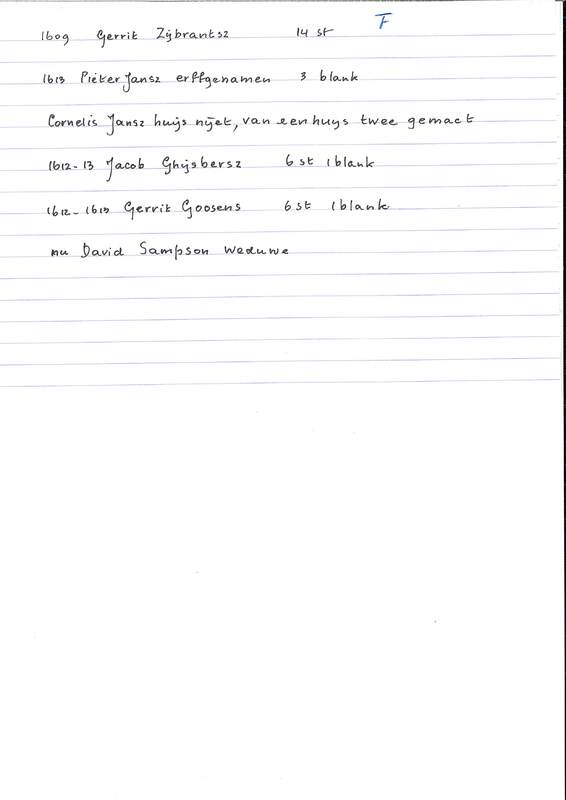 1609 Gerrit Zijbrantsz 14 st F
1613 Pieter Jansz erffgenamen 3 blank
Cornelis Jansz huijs nijet, van een huys twee gemact
1612-13 Jacob Ghijsbersz 6 st 1 blank
1612-1613 Gerrit Goosens 6 st 1 blank
nu David Sampson weduwe